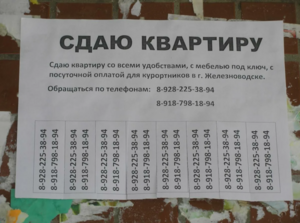 СДАЮ КВАРТИРУ
Сдаю квартиру со всеми удобствами, с мебелью под ключ, с
посуточной оплатой для курортников в г. Железноводске.
Обращаться по телефонам: 8-928-225-38-94
8-918-798-18-94
8-928-225-38-94
8-918-798-18-94
8-928-225-38-94
8-918-798-18-94
8-928-225-38-94
8-918-798-18-94
8-928-225-38-94
8-918-798-18-94
8-928-225-38-94
8-918-798-18-94
8-928-225-38-94
8-918-798-18-94
8-928-225-38-94
8-918-798-18-94
8-928-225-38-94
8-918-798-18-94